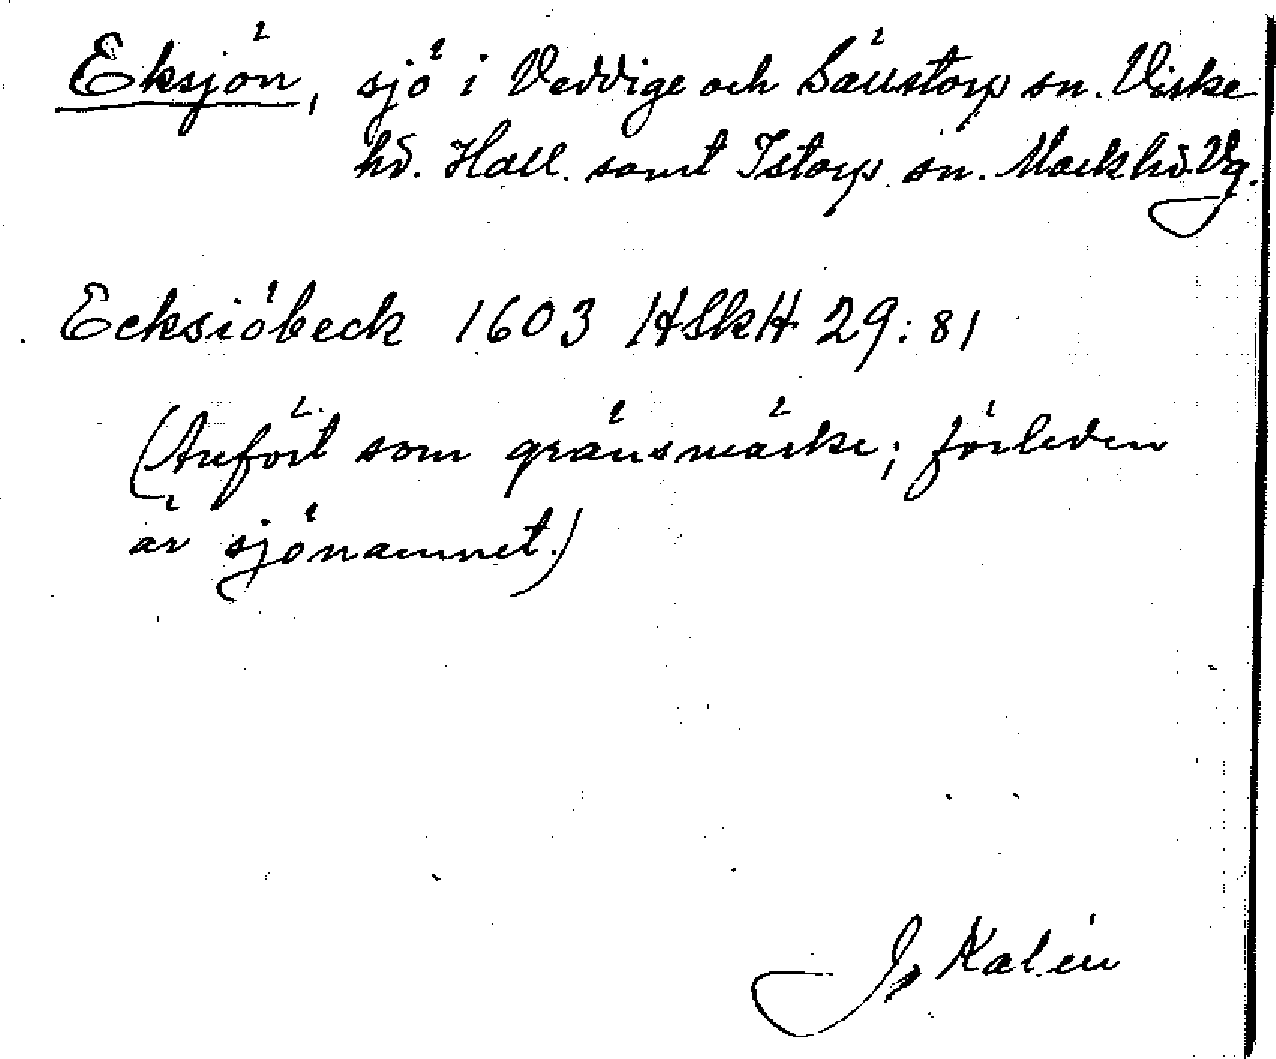 Eksjön, sjö i Veddige och Säustorp sn. Viske
hd. Hall. samt Istorp sn. Mark hd. Vg.
Ecksiöbeck 1603 HSkH 29:81
(Anfört som gränsmärke; förleden
är sjönamnet.)
Js Kalén